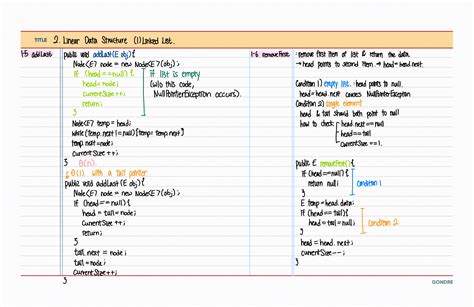 TITLE 2. Linear Data Structure (1) Linked List.
1-5 addLast
public void addLast(E obj) {
Node<E> node = new Node<E>(obj);
if (head == null) {
head = node;
currentSize++;
return;
}
if list is empty
(w/o this code,
NullPointerException occurs).
Node<E> temp = head;
while (temp.next != null) {temp = temp.next}
temp.next = node;
currentSize++;
}
θ(n).
θ(1). with a tail pointer
public void addLast(E obj) {
Node<E> node = new Node<E>(obj);
if (head == null) {
head = tail = node;
currentSize++;
return;
}
tail.next = node;
tail = node;
currentSize++;
}
1-6 removeFirst
: remove first item of list & return the data.
→ head points to second item. → head = head.next.
Condition 1) empty list : head points to null.
head = head.next causes NullPointerException
Condition 2) single element
head & tail both should point to null
how to check : head.next == null
head == tail
currentSize == 1.
public E removeFirst() {
if (head == null) {
return null;
}
condition 1
E temp = head.data;
if (head == tail) {
head = tail = null;
}
condition 2
head = head.next;
currentSize--;
return temp;
}
GONDRE